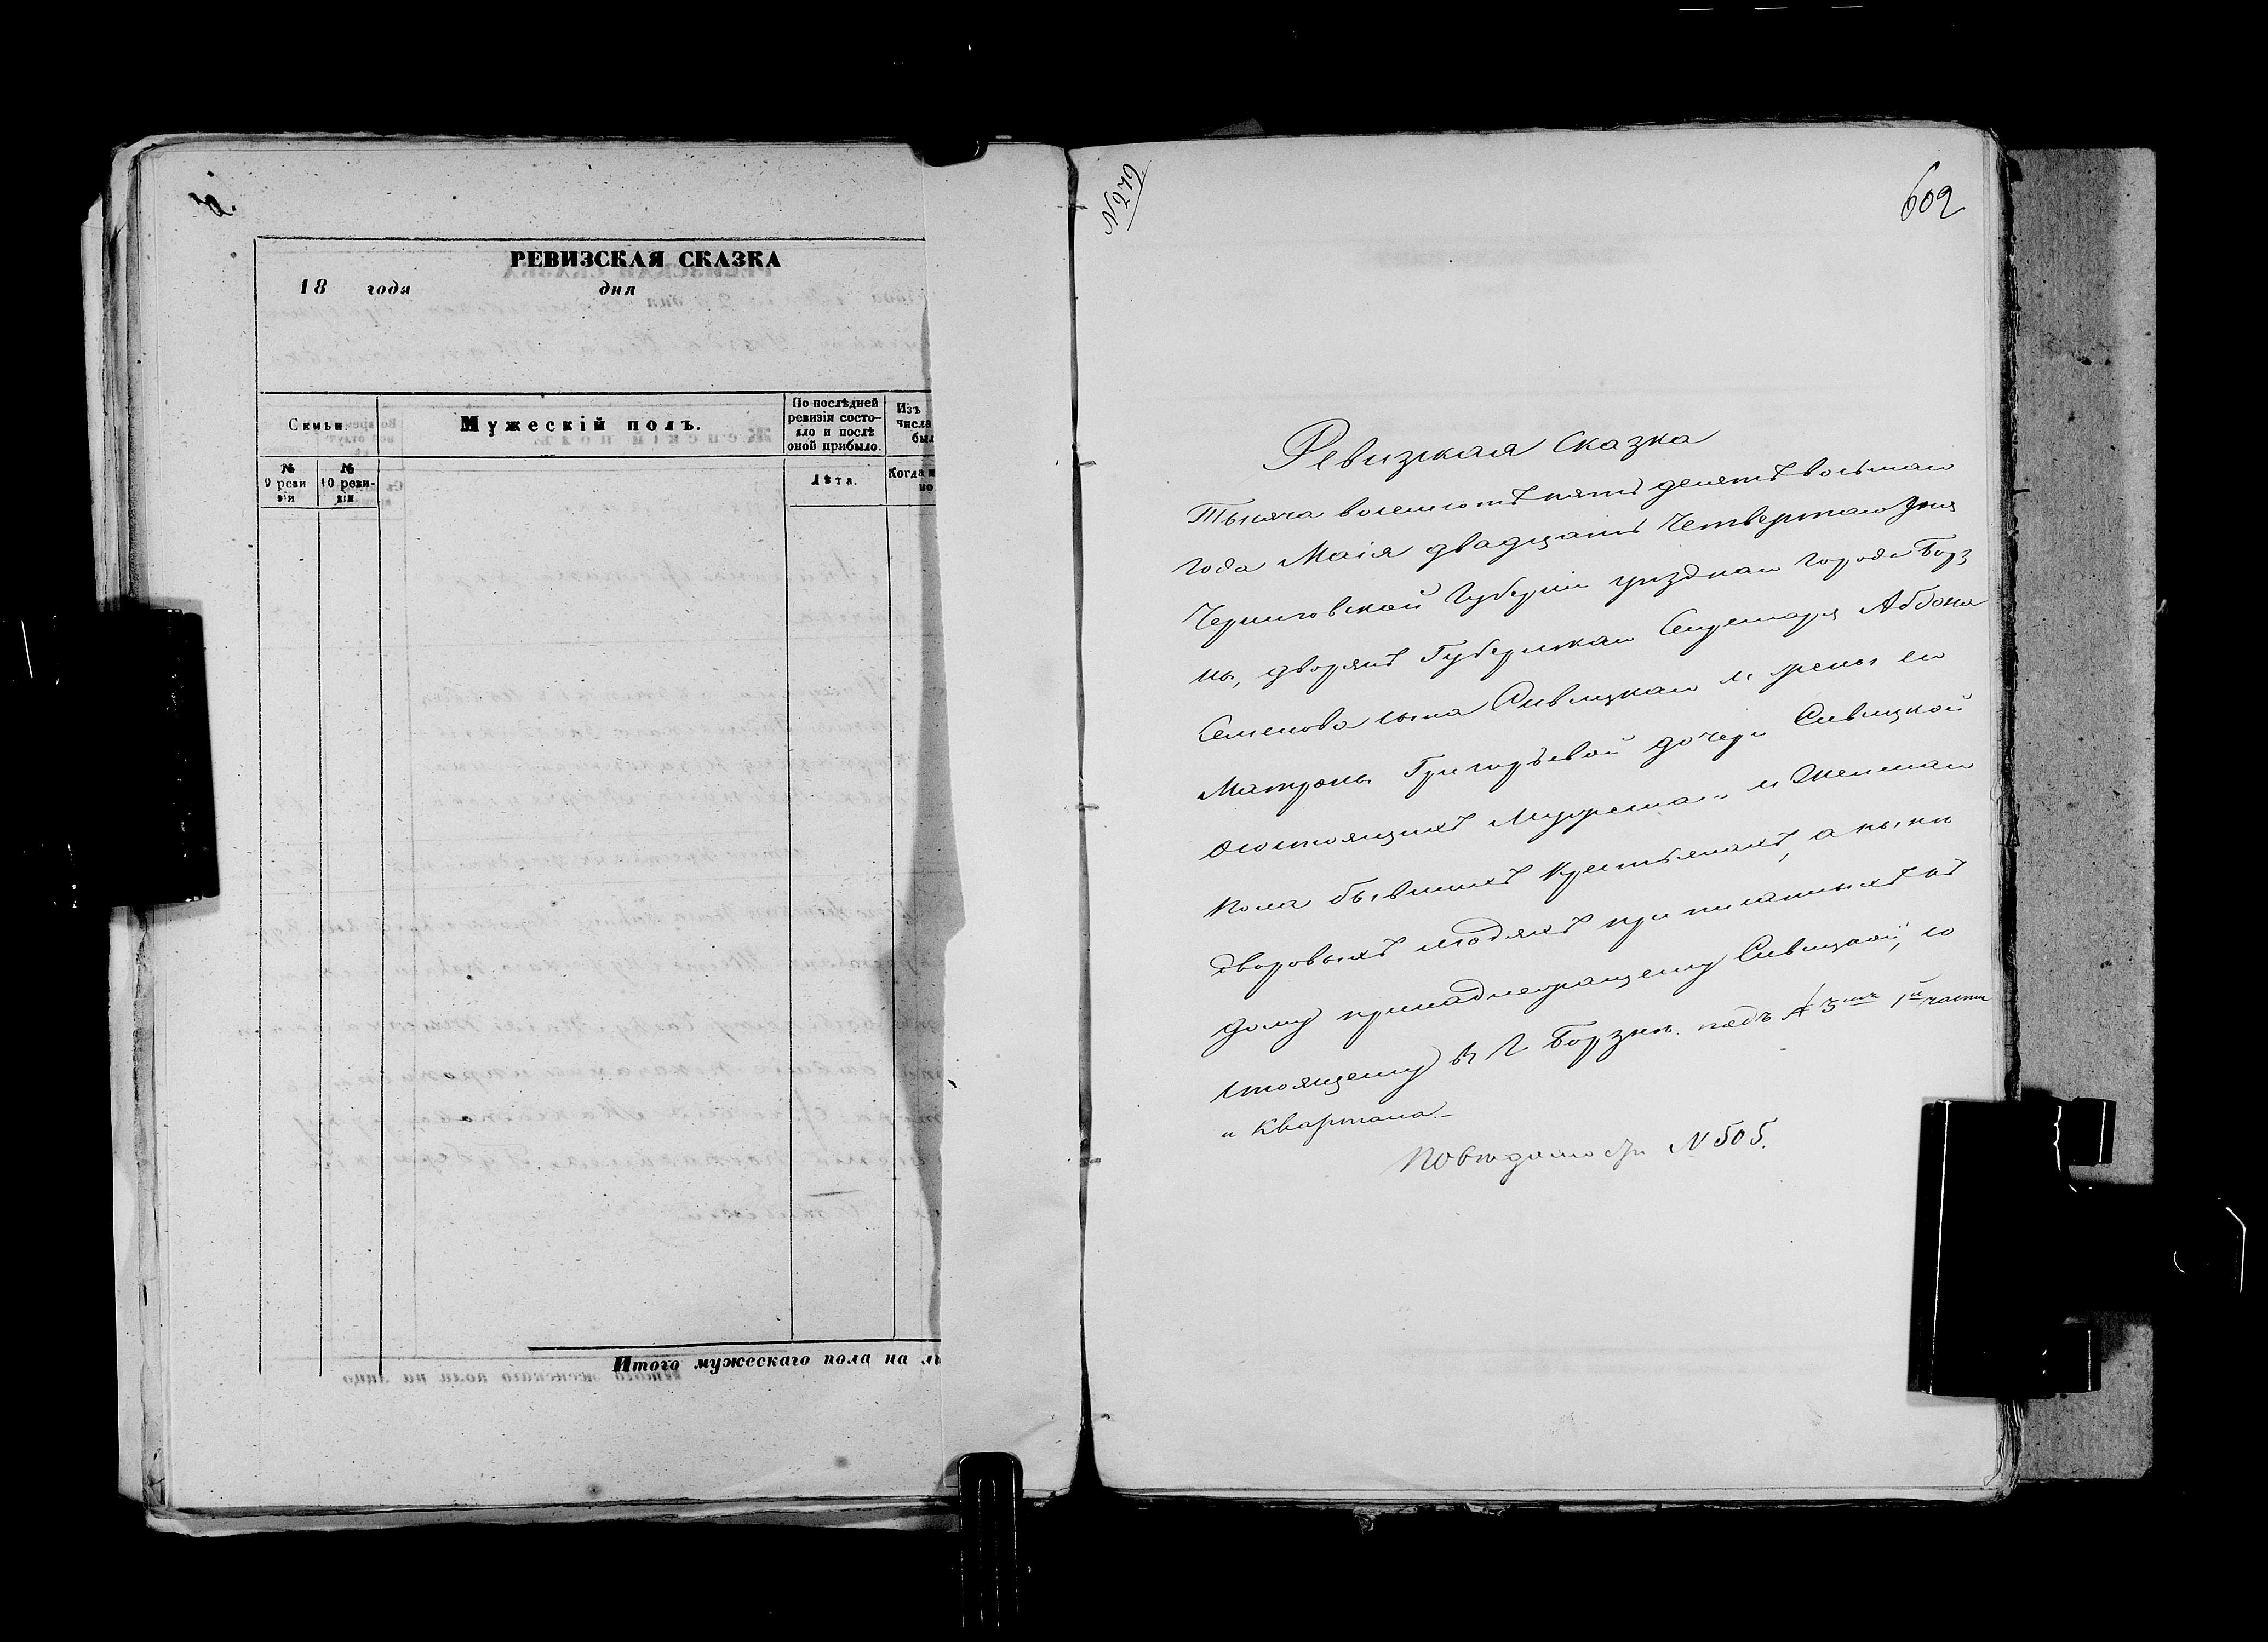 РЕВИЗСКАЯ СКАЗКА
18 года дня
Семьи.
Мужескій полъ.
По послѣдней
ревизіи состо-
яло и послѣ
оной прибыло.
Изъ
числа
был
№
9 реви
зіи
№
10 реви-
зіи
Лѣта.
Когда
Итого мужескаго пола на
N 279
602
Ревизкая Сказка
Тысяча восемсотъ пятъ десятъ восьмаго
года Маія двадцать Четвертаго дня
Черниговской Губерніи уѣзднаго города Борз
ны, дворянъ Губернскаго Секретаря Абдона
Семенова сына Сивицкаго и жены его
Матроны Григорьевой дочери Сивицкой
осостоящихъ Мужеска и Женскаго
пола бывшихъ крестьянахъ, а нынѣ
дворовыхъ людяхъ приписанныхъ къ
дому принадлежащему Сивицкой, со
стоящему въ Г Борзнѣ. подъ № 3мъ 1й части
и Квартала.-
N 505.